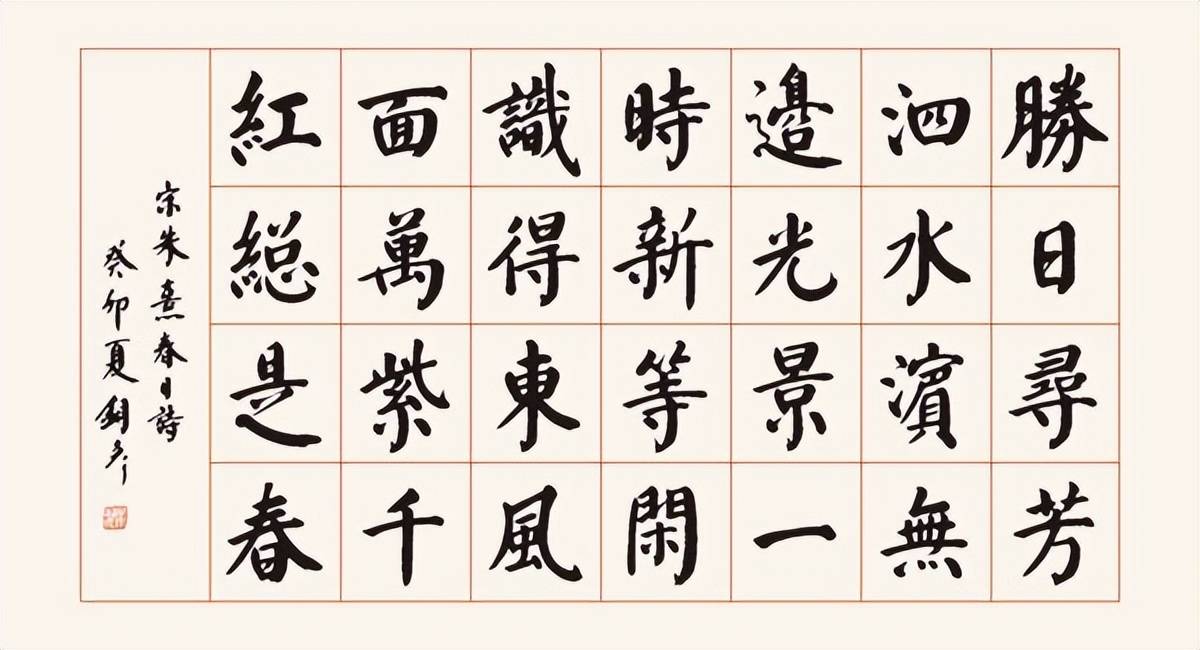 勝日尋芳
泗水濱無
邊光景一
時新等閑
識得東風
面萬紫千
紅總是春
宋朱熹春日詩
癸卯夏